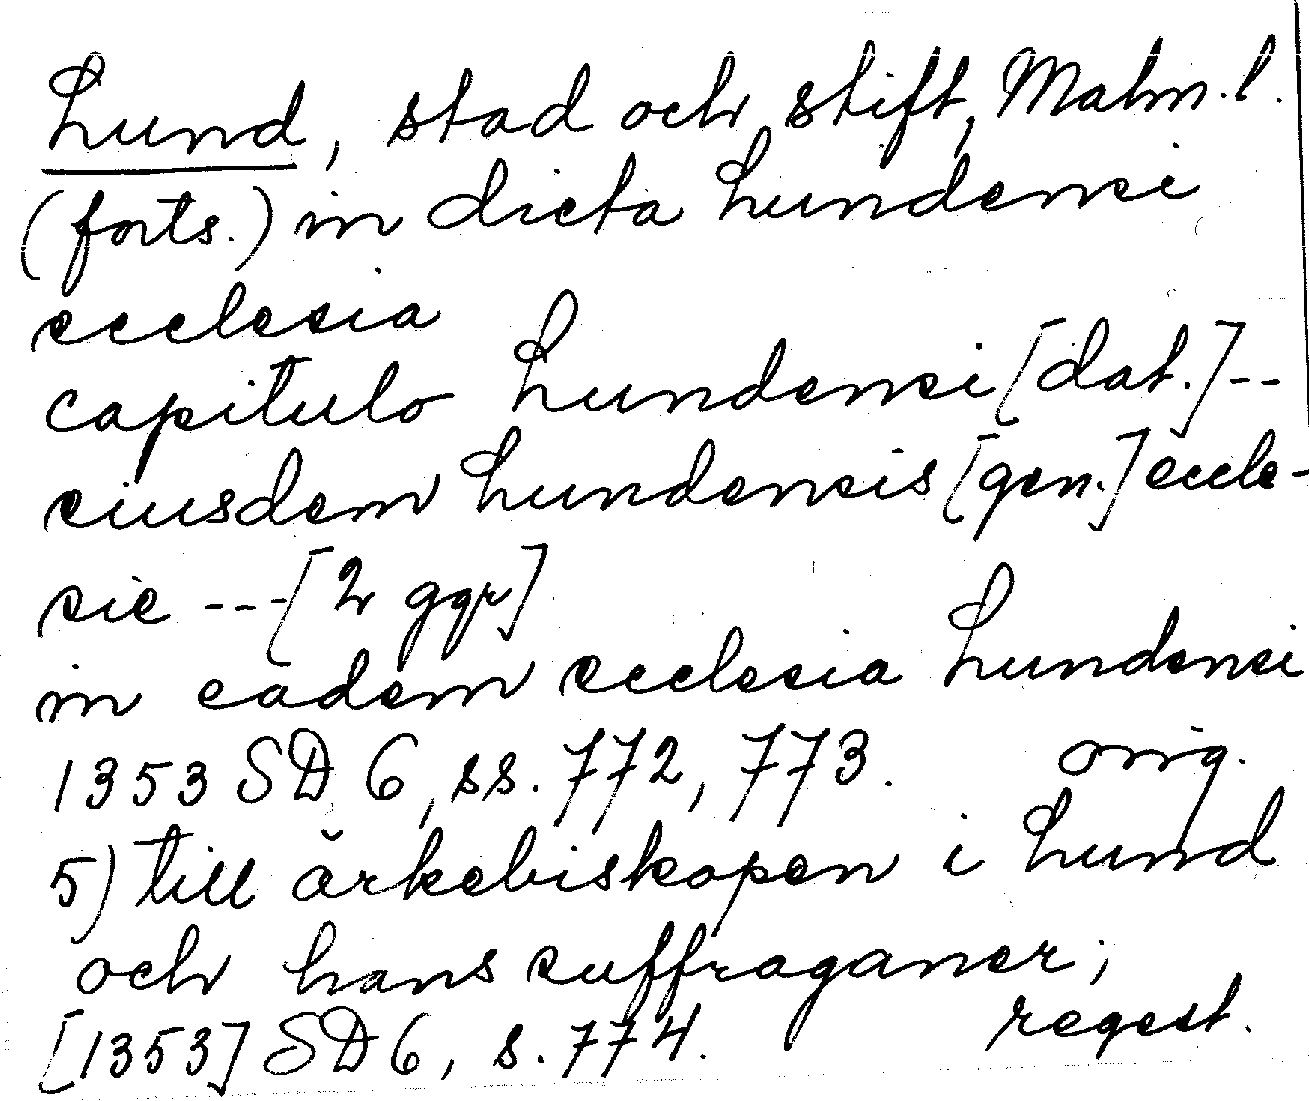 Lund, stad och stift, Malm. l.
(forts.) in dicta Lundensi
ecclesia
capitulo Lundensi [dat.] --
eiusdem Lundensis [gen.] eccle-
sie --- [2 ggr]
in eadem ecclesia Lundensi
1353 SD 6, ss. 772, 773. orig.
5) till ärkebiskopen i Lund
och hans suffraganer;
[1353] SD 6, s. 774. regest.